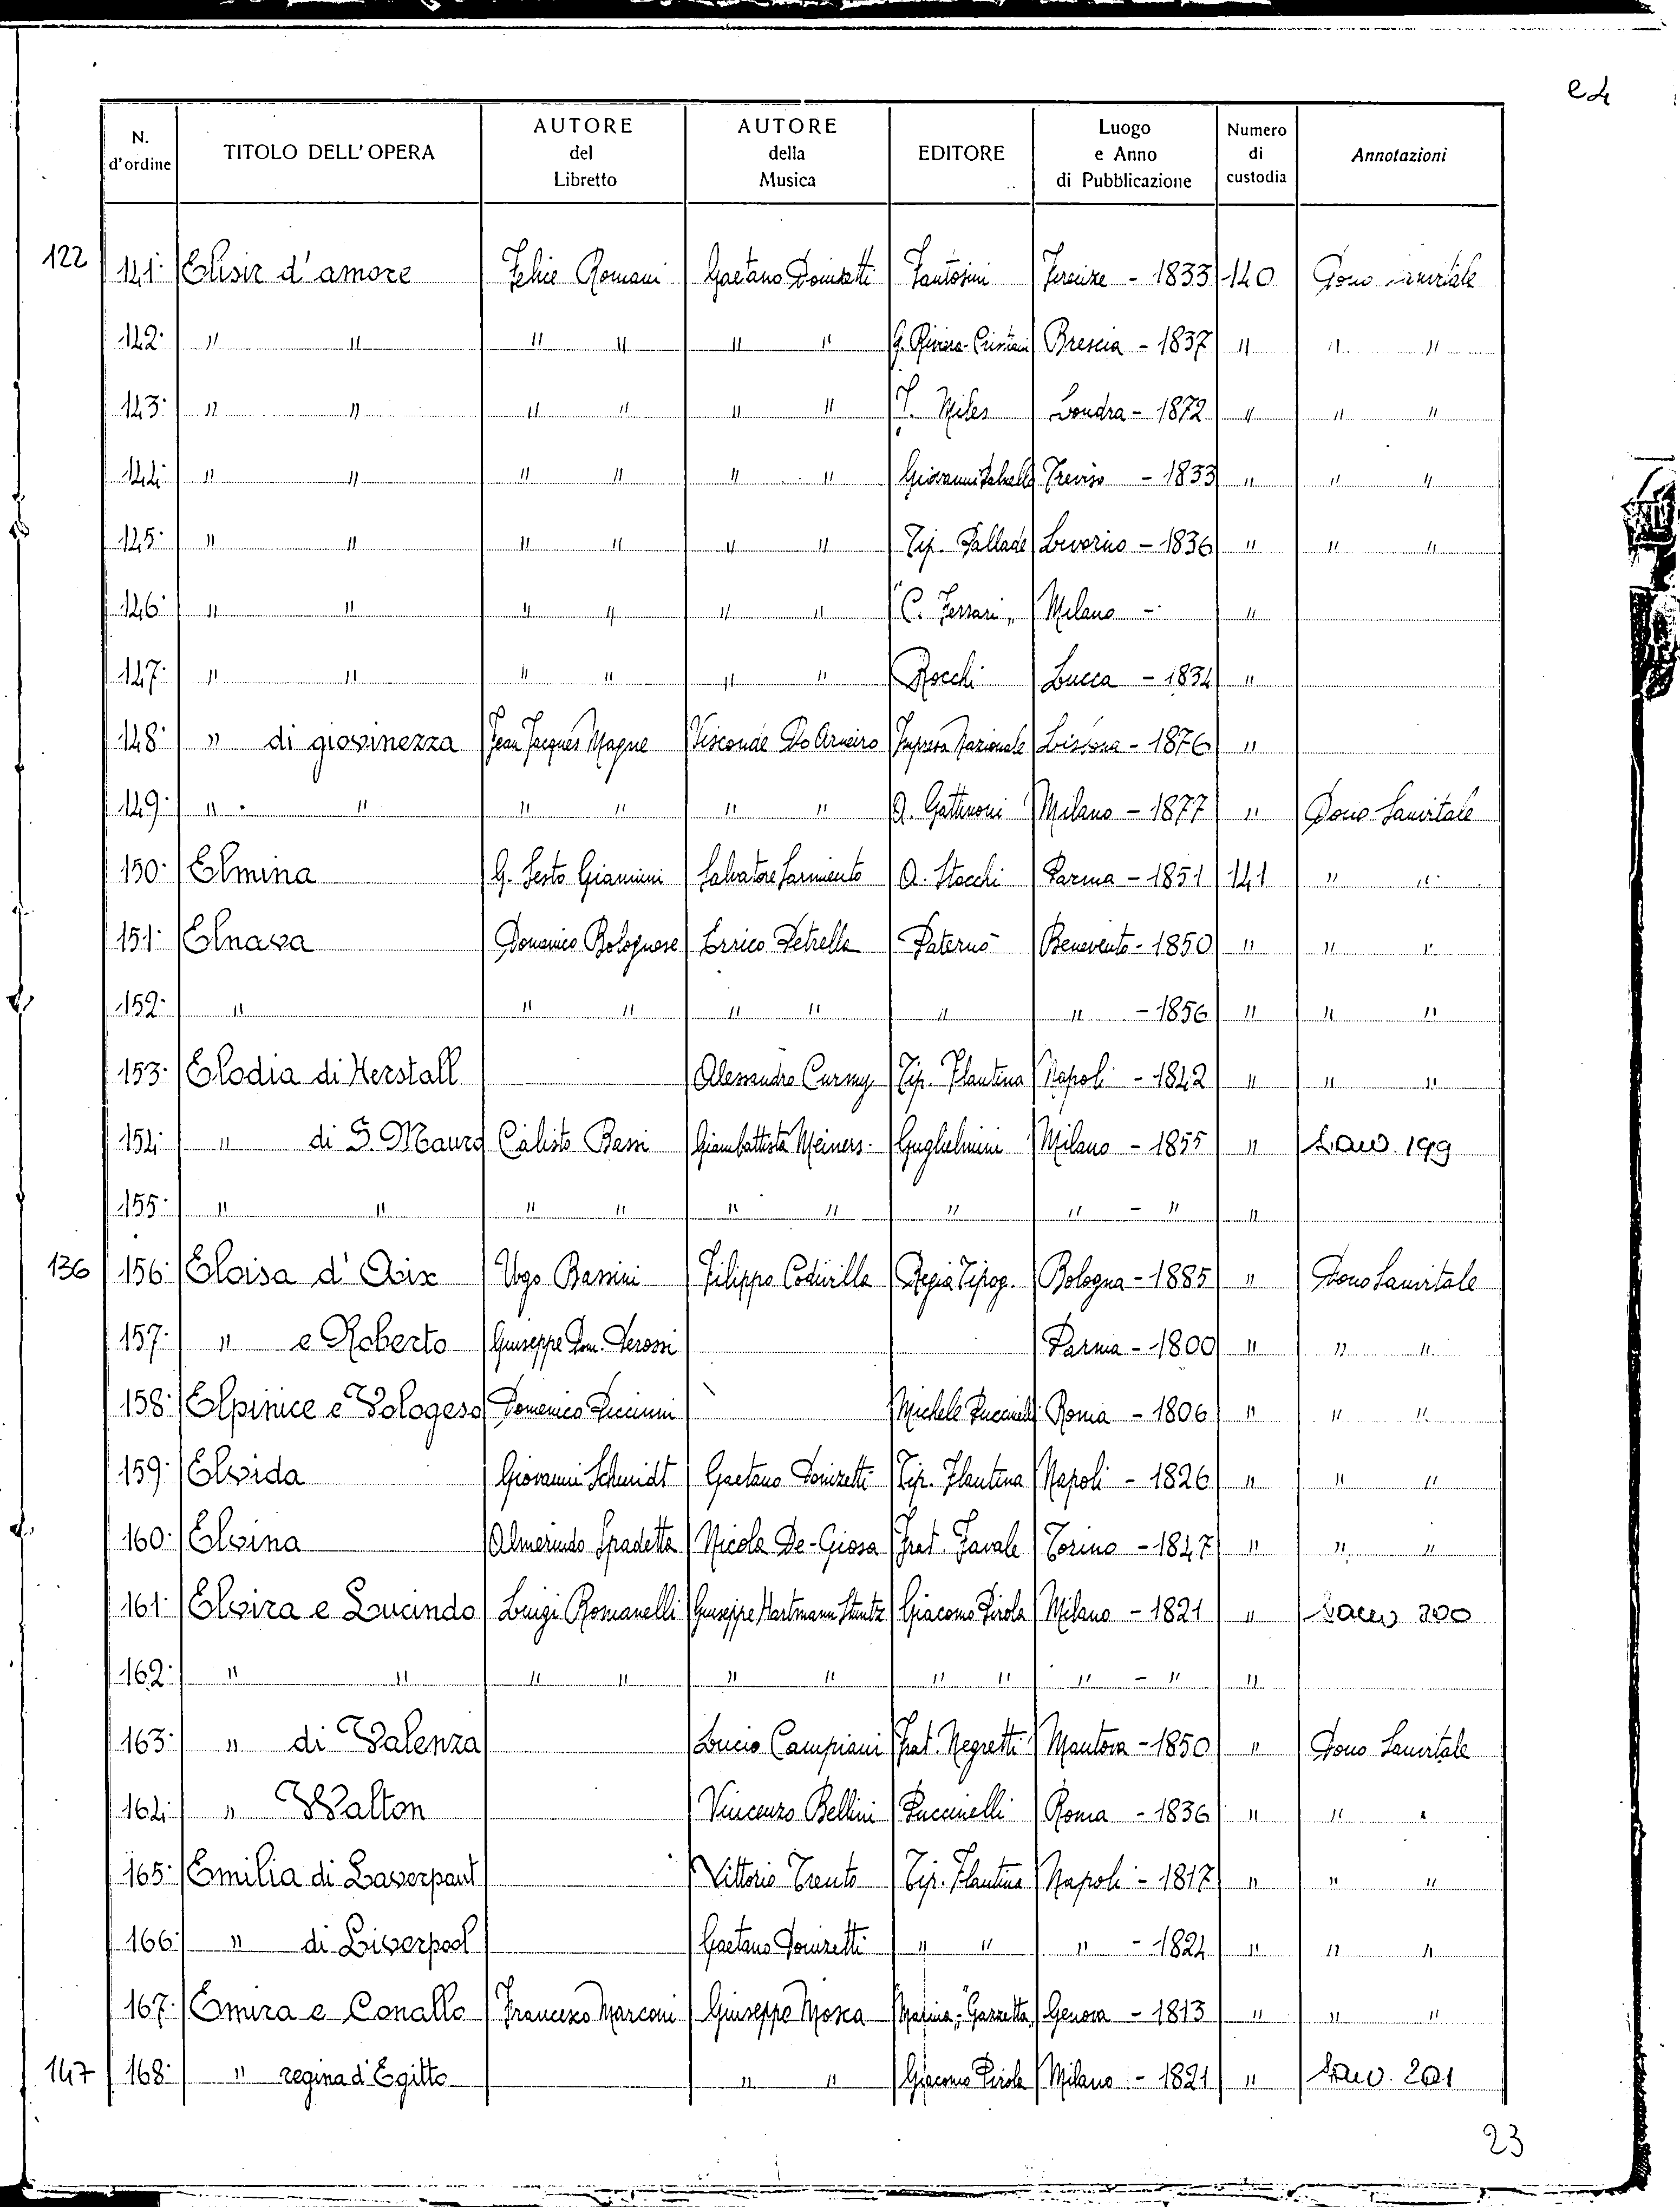 e4
N. d'ordine | TITOLO DELL'OPERA | AUTORE del Libretto | AUTORE della Musica | EDITORE | Luogo e Anno di Pubblicazione | Numero di custodia | Annotazioni
122 | 141· | Elisir d'amore | Felice Romani | Gaetano Donizetti | Fantosini | Firenze - 1833 | 140 | Dono Sanvitale
142· | " " | " " | " " | G. Riviera-Cristiani | Brescia - 1837 | " | " "
143· | " " | " " | " " | Miles | Londra - 1872 | " | " "
144· | " " | " " | " " | Giovanni | Treviso - 1833 | " | " "
145· | " " | " " | " " | Tip. Pallade | Livorno - 1836 | " | " "
146· | " " | " " | " " | C. Ferrari " | Milano - | "
147· | " " | " " | " " | Rocchi | Lucca - 1834 | "
148· | " di giovinezza | Jean Jacques Magne | Visconde Do Arneiro | Impresa Nazionale | Lisbona - 1876 | "
149· | " " | " " | " " | A. Gattinoni | Milano - 1877 | " | Dono Sanvitale
150· | Elmina | G. Sesto Giannini | Salvatore Sarmiento | A. Stocchi | Parma - 1851 | 141 | " "
151· | Elnava | Domenico Bolognese | Errico Petrella | Paternò | Benevento - 1850 | " | " "
152· | " | " " | " " | " | " - 1856 | " | " "
153· | Elodia di Herstall | Alessandro Curmy | Tip. Flautina | Napoli - 1842 | " | " "
154· | " di S. Mauro | Calisto Bassi | Giambattista Meiners | Guglielmini | Milano - 1855 | " | Lavo. 199
155· | " " | " " | " " | " | " - " | "
136 | 156· | Eloisa d'Aix | Ugo Bassini | Filippo Codivilla | Regia Tipog. | Bologna - 1885 | " | Dono Sanvitale
157· | " e Roberto | Giuseppe Dom. Derossi | Parma - 1800 | " | " "
158· | Elpinice e Vologeso | Domenico Piccinni | Michele Puccinelli | Roma - 1806 | " | " "
159· | Elvida | Giovanni Schmidt | Gaetano Donizetti | Tip. Flautina | Napoli - 1826 | " | " "
160· | Elvina | Almerindo Spadetta | Nicola De-Giosa | Frat. Favale | Torino - 1847 | " | " "
161· | Elvira e Lucindo | Luigi Romanelli | Giuseppe Hartmann Stuntz | Giacomo Pirola | Milano - 1821 | " | 200
162· | " " | " " | " " | " " | " - " | "
163· | " di Valenza | Lucio Campiani | Frat. Negretti | Mantova - 1850 | " | Dono Sanvitale
164· | " Walton | Vincenzo Bellini | Puccinelli | Roma - 1836 | " | " "
165· | Emilia di Laverpaut | Vittorio Trento | Tip. Flautina | Napoli - 1817 | " | " "
166· | " di Liverpool | Gaetano Donizetti | " " | " - 1824 | " | " "
167· | Emira e Conallo | Francesco Marconi | Giuseppe Mosca | Gazzetta | Genova - 1813 | " | " "
147 | 168· | " regina d'Egitto | " " | Giacomo Pirola | Milano - 1821 | " | Lavo. 201
23